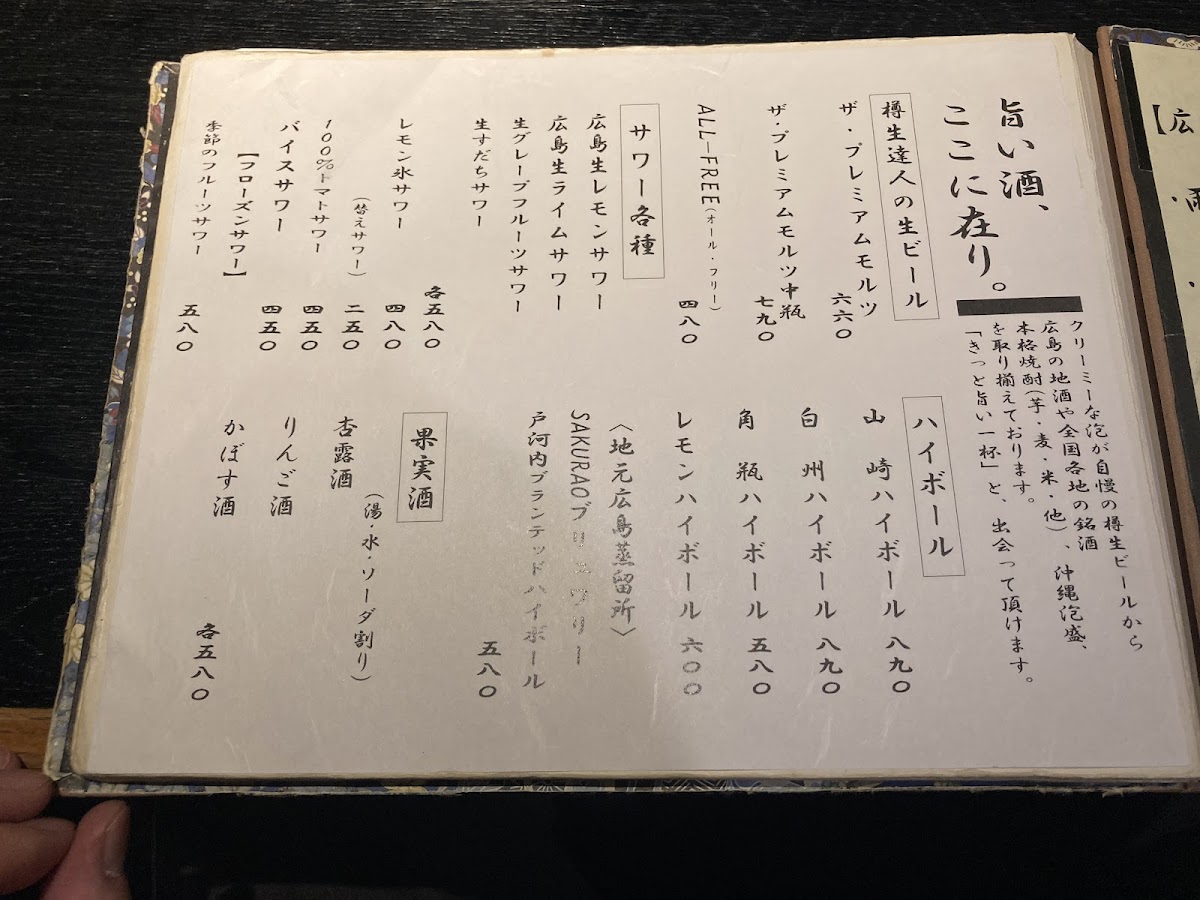 旨い酒、
ここに在り。
クリーミーな泡が自慢の樽生ビールから
広島の地酒や全国各地の銘酒
本格焼酎(芋・麦・米・他)、沖縄泡盛、
を取り揃えております。
「きっと旨い一杯」と、出会って頂けます。
樽生達人の生ビール
ザ・プレミアムモルツ 六六〇
ザ・プレミアムモルツ中瓶 七九〇
ALL-FREE(オール・フリー) 四八〇
サワー各種
広島生レモンサワー
広島生ライムサワー
生グレープフルーツサワー
生すだちサワー
各五八〇
レモン氷サワー 四八〇
(替えサワー) 二五〇
100%トマトサワー 四五〇
バイスサワー 四五〇
【フローズンサワー】
季節のフルーツサワー 五八〇
ハイボール
山崎ハイボール 八九〇
白州ハイボール 八九〇
角瓶ハイボール 五八〇
レモンハイボール 六〇〇
〈地元広島蒸留所〉
SAKURAOブ
戸河内ブランテッドハイボール
五八〇
果実酒
(湯・水・ソーダ割り)
杏露酒
りんご酒
かぼす酒
各五八〇
【広